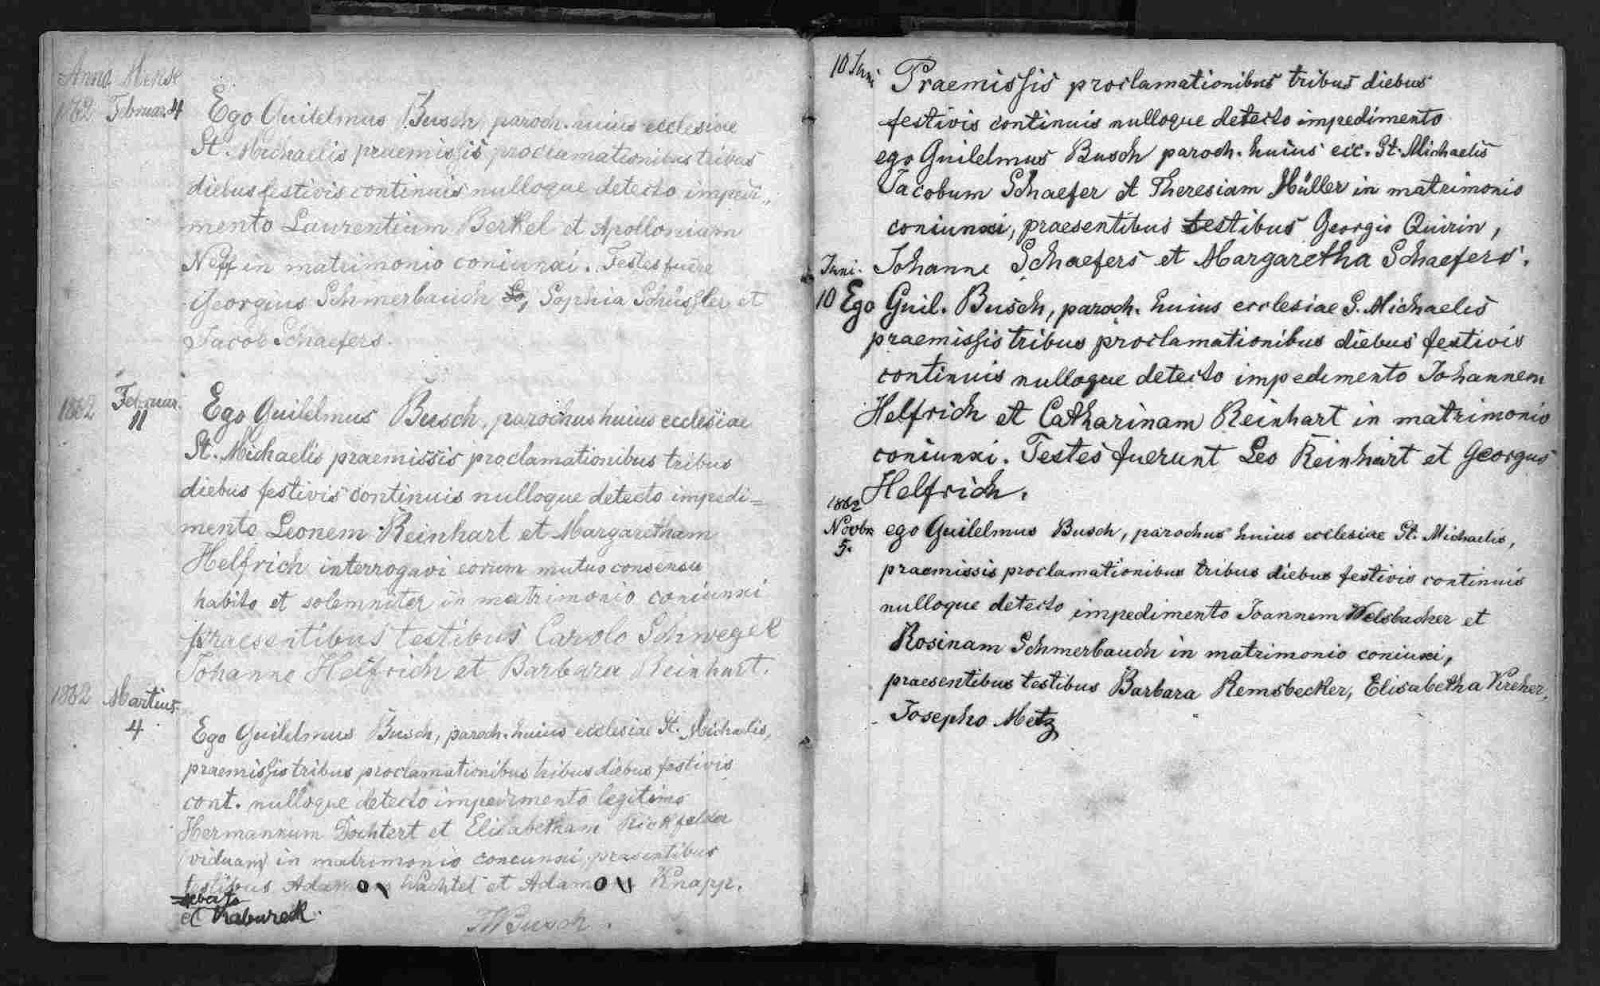 Anno Mense
1862 Februar. 4
Ego Guilelmus Busch, paroch. huius ecclesiae
St. Michaelis praemissis proclamationibus tribus
diebus festivis continuis nulloque detecto impedi-
mento Laurentium Berkel et Apolloniam
Neff in matrimonio coniunxi. Testes fuere
Georgius Schmerbauch, Sophia Schüssler et
Jacob Schaefers.
1862 Februar. 11
Ego Guilelmus Busch, parochus huius ecclesiae
St. Michaelis praemissis proclamationibus tribus
diebus festivis continuis nulloque detecto impedi=
mento Leonem Reinhart et Margaretham
Helfrich interrogavi eorum mutuo consensu
habito et solemniter in matrimonio coniunxi
praesentibus testibus Carolo Schwegel
Johanne Helfrich et Barbara Reinhart.
1862 Martius 4
Ego Guilelmus Busch, paroch. huius ecclesiae St. Michaelis,
praemissis tribus proclamationibus tribus diebus festivis
cont. nulloque detecto impedimento legitimo
Hermannum Dochtert et Elisabetham Rickfelder
(viduam) in matrimonio coniunxi, praesentibus
testibus Adamo Wachtel et Adamo Knapp.
et Chabureck.
WBusch.
10 Juni
Praemissis proclamationibus tribus diebus
festivis continuis nulloque detecto impedimento
ego Guilelmus Busch paroch. huius ecc. St. Michaelis
Jacobum Schaefer et Theresiam Müller in matrimonio
coniunxi, praesentibus testibus Georgio Quirin,
Johanne Schaefers et Margaretha Schaefers.
Juni. 10
Ego Guil. Busch, paroch. huius ecclesiae S. Michaelis
praemissis tribus proclamationibus diebus festivis
continuis nulloque detecto impedimento Johannem
Helfrich et Catharinam Reinhart in matrimonio
coniunxi. Testes fuerunt Leo Reinhart et Georgus
Helfrich.
1862
Novbr. 5.
ego Guilelmus Busch, parochus huius ecclesiae St. Michaelis,
praemissis proclamationibus tribus diebus festivis continuis
nulloque detecto impedimento Joannem Welsbacher et
Rosinam Schmerbauch in matrimonio coniunxi,
praesentibus testibus Barbara Remsbecker, Elisabetha Kreher,
Josepho Metz